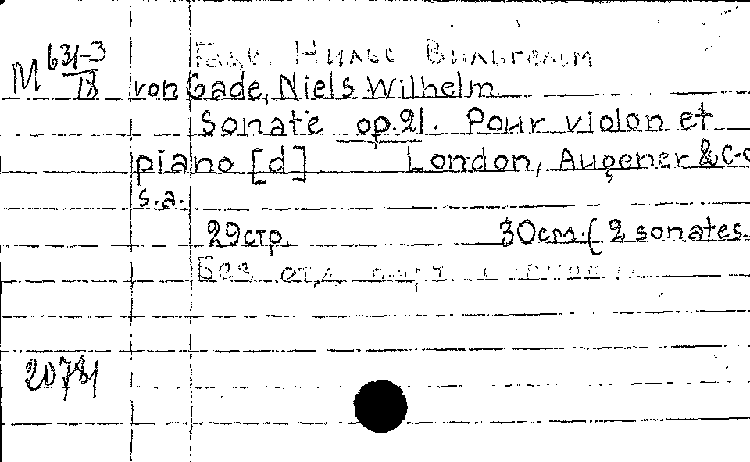 M 631-3/18
Гаде, Нильс Вильгельм
von Gade, Niels Wilhelm
Sonate op.21. Pour violon et
piano [d] London, Augener & C-o
s.a.
29стр. 30см. (2 sonates.
Без отд. парт. скрипки
20781